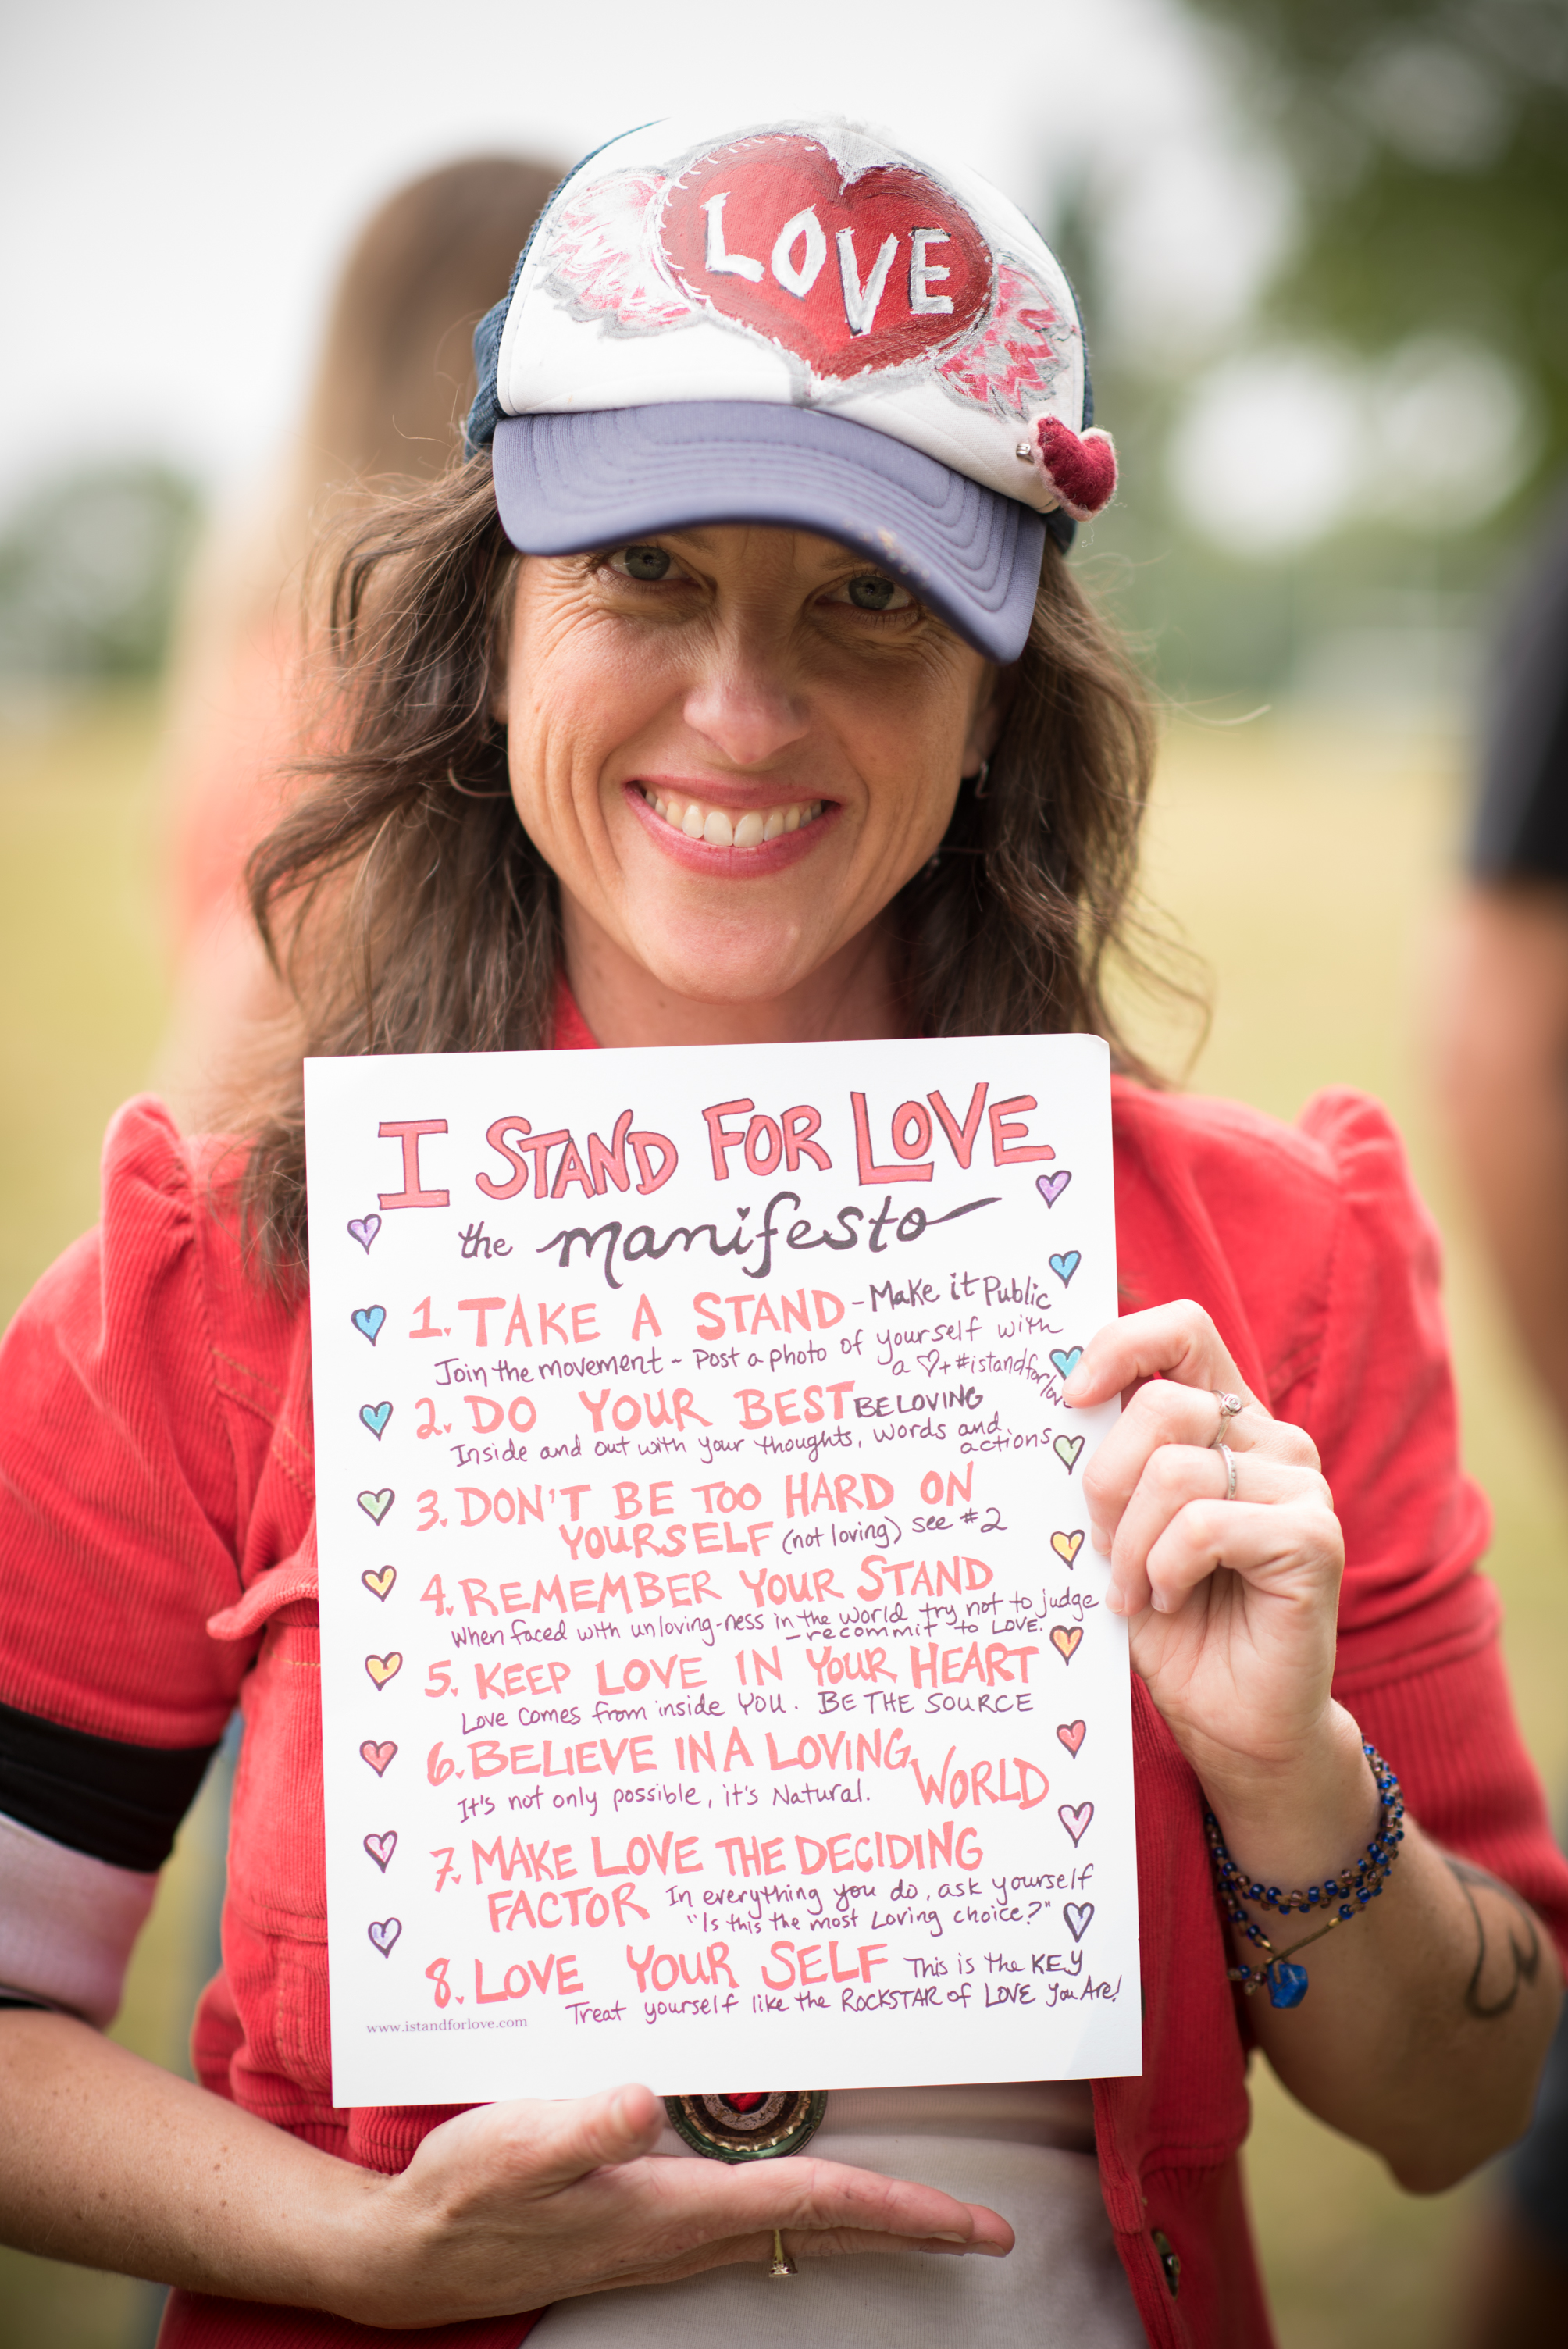 LOVE
I STAND FOR LOVE
the manifesto
1. TAKE A STAND - Make it Public
Join the movement ~ Post a photo of yourself with
a ♡ + #istandforlove
2. DO YOUR BEST BE LOVING
Inside and out with your thoughts, words and
actions
3. DON'T BE TOO HARD ON
YOURSELF (not loving) see #2
4. REMEMBER YOUR STAND
When faced with unloving-ness in the world try not to judge
- recommit to LOVE.
5. KEEP LOVE IN YOUR HEART
Love comes from inside YOU. BE THE SOURCE
6. BELIEVE IN A LOVING
WORLD
It's not only possible, it's Natural.
7. MAKE LOVE THE DECIDING
FACTOR In everything you do, ask yourself
"Is this the most Loving choice?"
8. LOVE YOUR SELF This is the KEY
Treat yourself like the ROCKSTAR of LOVE You Are!
www.istandforlove.com